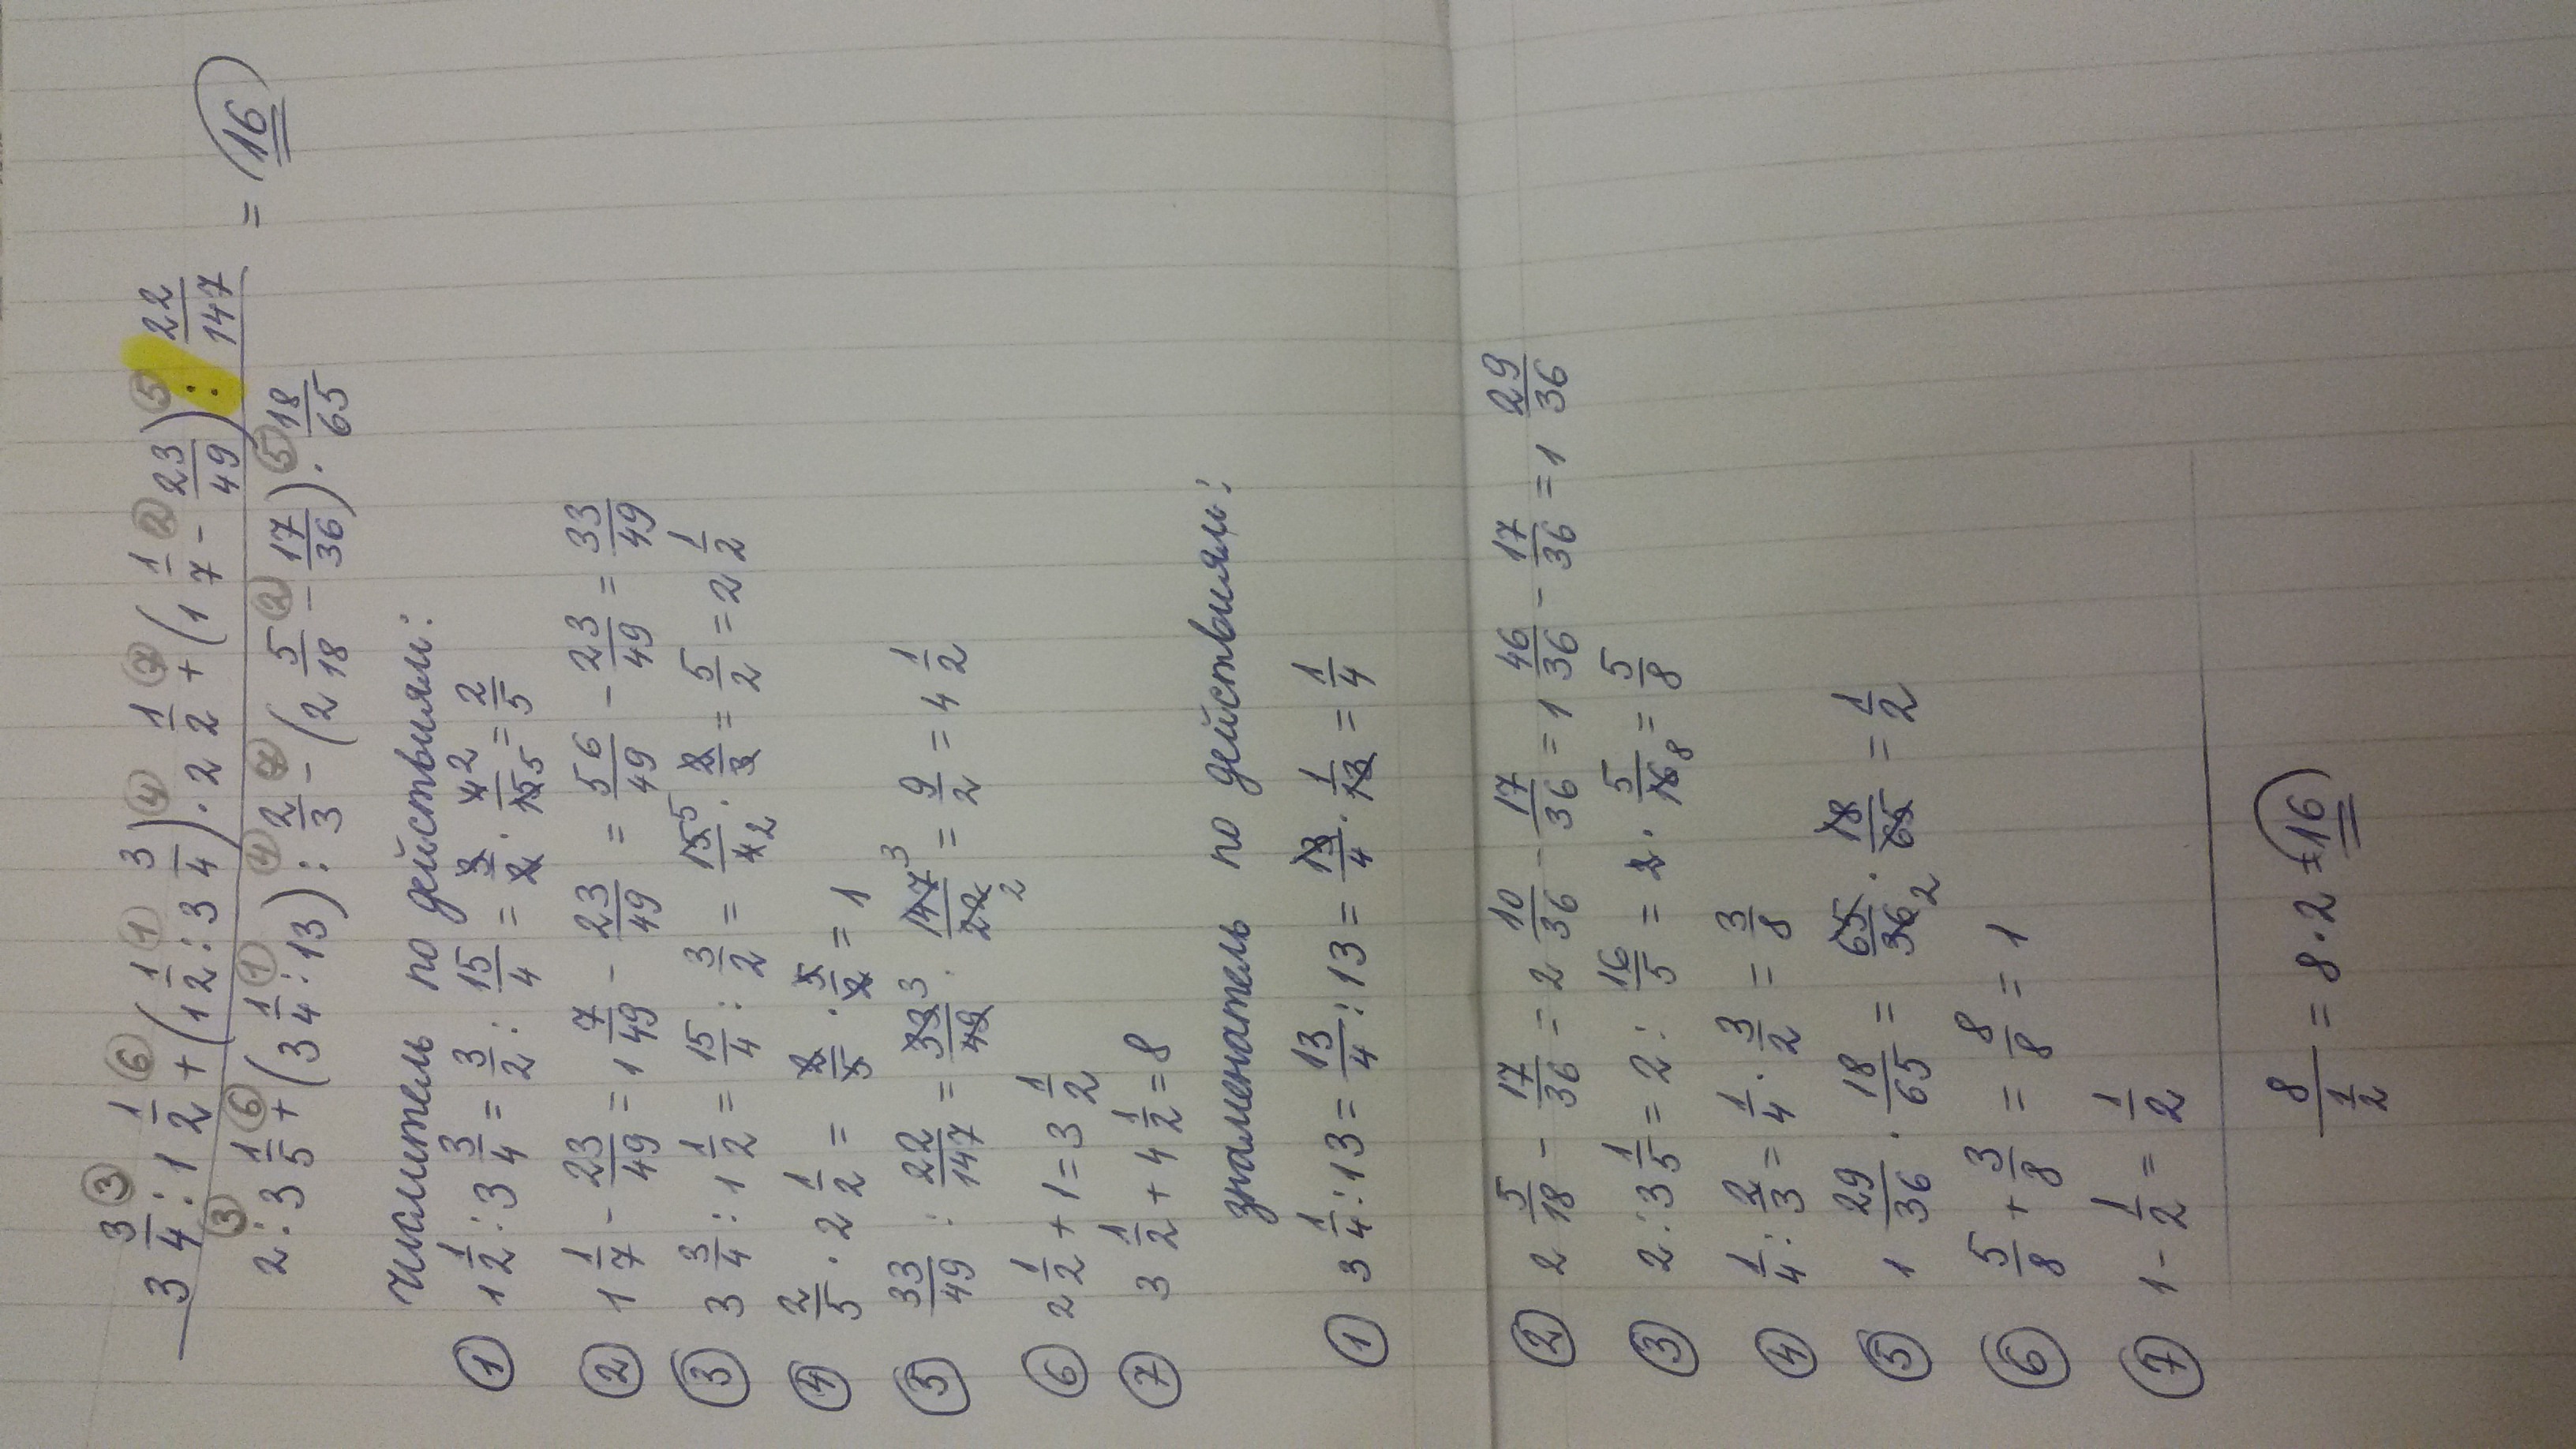 3 3/4 ③ : 1 1/2 ⑥ + (1 1/2 ① : 3 3/4) ④ · 2 1/2 ⑦ + (1 1/7 ② - 23/49) ⑤ : 22/147
2 ③ : 3 1/5 ⑥ + (3 1/4 ① : 13) ④ : 2/3 ⑦ - (2 5/18 ② - 17/36) ⑤ · 18/65
= 16
числитель по действиям:
① 1 1/2 : 3 3/4 = 3/2 : 15/4 = 3/2 · 4 2/15 5 = 2/5
② 1 1/7 - 23/49 = 1 7/49 - 23/49 = 56/49 - 23/49 = 33/49
③ 3 3/4 : 1 1/2 = 15/4 : 3/2 = 15 5/4 2 · 2/3 = 5/2 = 2 1/2
④ 2/5 · 2 1/2 = 2/5 · 5/2 = 1
⑤ 33/49 : 22/147 = 33 3/49 · 147 3/22 2 = 9/2 = 4 1/2
⑥ 2 1/2 + 1 = 3 1/2
⑦ 3 1/2 + 4 1/2 = 8
знаменатель по действиям:
① 3 1/4 : 13 = 13/4 : 13 = 13/4 · 1/13 = 1/4
② 2 5/18 - 17/36 = 2 10/36 - 17/36 = 1 46/36 - 17/36 = 1 29/36
③ 2 : 3 1/5 = 2 : 16/5 = 2 · 5/16 8 = 5/8
④ 1/4 : 2/3 = 1/4 · 3/2 = 3/8
⑤ 1 29/36 · 18/65 = 65/36 2 · 18/65 = 1/2
⑥ 5/8 + 3/8 = 8/8 = 1
⑦ 1 - 1/2 = 1/2
8/(1/2) = 8 · 2 = 16